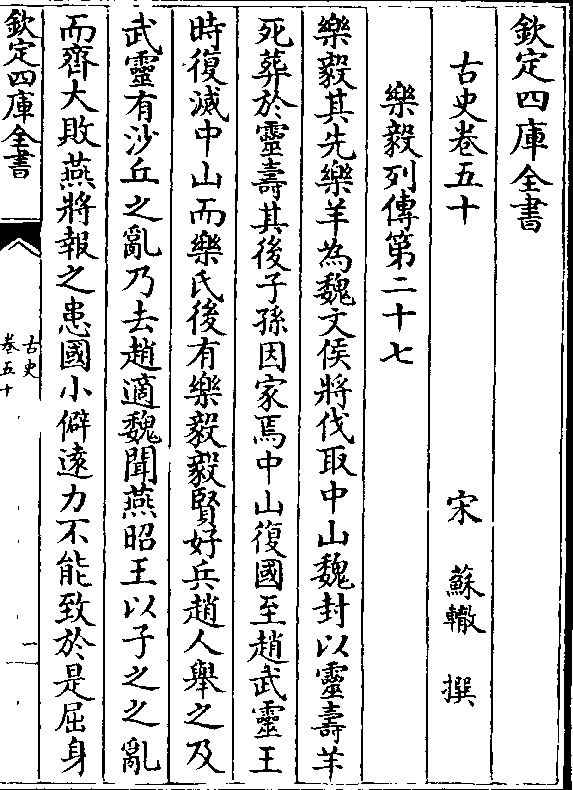 欽定四庫全書
古史卷五十
宋 蘇轍 撰
樂毅列傳第二十七
樂毅其先樂羊為魏文侯將伐取中山魏封以靈壽羊
死葬於靈壽其後子孫因家焉中山復國至趙武靈王
時復滅中山而樂氏後有樂毅毅賢好兵趙人舉之及
武靈有沙丘之亂乃去趙適魏聞燕昭王以子之之亂
而齊大敗燕將報之患國小僻遠力不能致於是屈身
欽定四庫全書
古史
卷五十
一